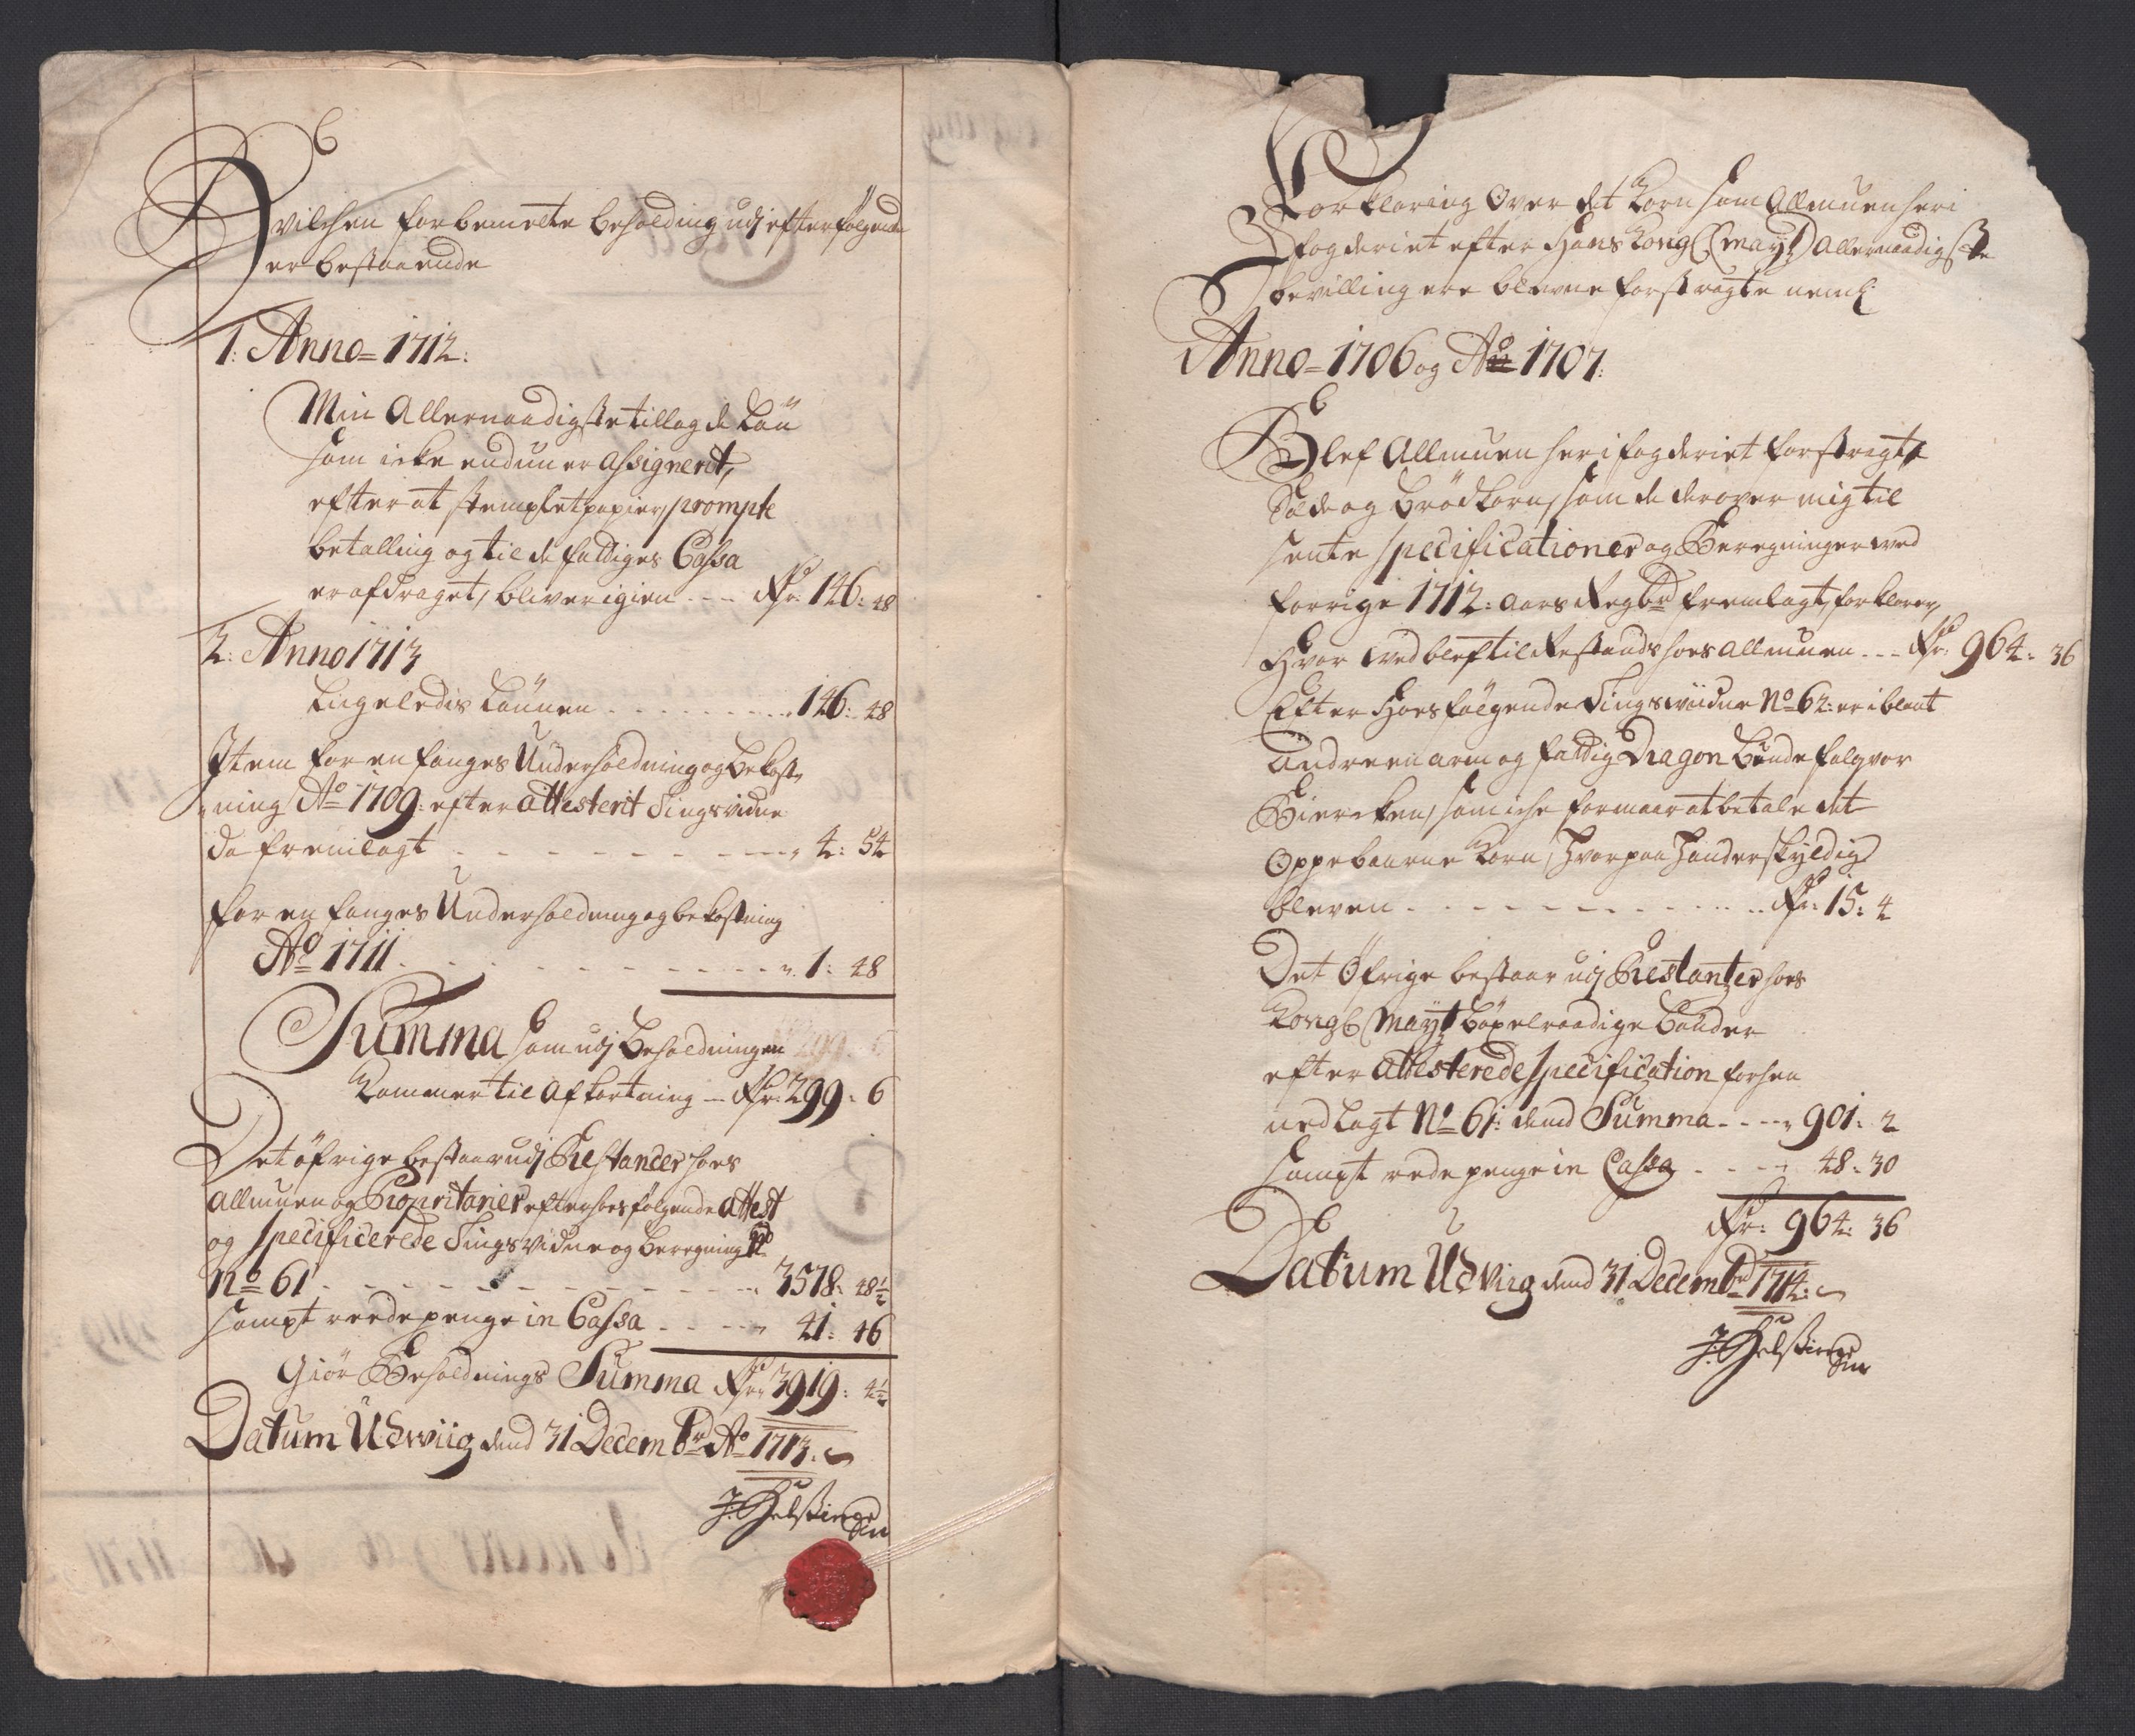 Hvilchen forbemelte beholding udj efterfølgende
er bestaaende
1: Anno = 1712:
Min Allernaadigste tillagde Løn
som icke endnu er assignerit,
efter at stemplet papier, prompte
betalling og til de fattiges Cassa
er afdraget, bliver igien --- Rdr: 146: 48
2: Anno 1713
Ligeledis Lønnen . . . . . . . . . . 146: 48
Item for en fanges Underholdning og bekost,,
,,ning Ao 1709: efter attesterit Tingsvidne
da fremlagt - - - - - - - - - - 4: 54
for en fanges Underholdning og bekostning
Ao 1711. - - - - - - - - - - 1: 48
Summa som udj beholdningen
kommer til afkortning --- Rdr: 299: 6
Det øfrige bestaar udj Restancer hoes
allmuen og Propritarier efter hoesfølgende attest
og specificerede Tingsvidne og beregning
No 61 - - - - - - - - - - 3578: 48½
sampt reede penge in Cassa - - - - 41: 46
Giør Beholdnings Summa Rdr 3919: 4½
Datum Udviig dend 31 Decembr Ao 1713.
J: Helsinge
Forklaring Over det Korn som Allmuen her i
fogderiet efter Hans Kongl: Mayt Allernaadigste
bevilling ere blevne forstragte neml
Anno = 1706 og Ao 1707:
Blef Allmuen her i fogderiet forstragt
Sæde og Brødkorn, som de derover mig til
sente specificationer og Beregninger ved
forrige 1712: aars Regbr fremlagt, forklarer,
Hvor ved blef til Restands hoes allmuen --- Rdr: 964: 36
Efter Hoesfølgende Tingsviidne No 62: er iblant
andre en arm og fattig Dragon bunde
som iche formaar at betale det
Oppebaarne Korn, hvorpaa hand er skyldig
bleven - - - - - - - - - - Rdr: 15: 4
Det Øfrige bestaar udj Restantzer hoes
Kongl: Mayt bøxelraadige bønder
efter attesterede specification forhen
nedlagt No 61: dend Summa - - - - 901: 2
sampt rede penge in Cassa - - - - 48: 30
Rdr: 964: 36
Datum Udviig dend 31 Decembr 1714:
J: Helsinge